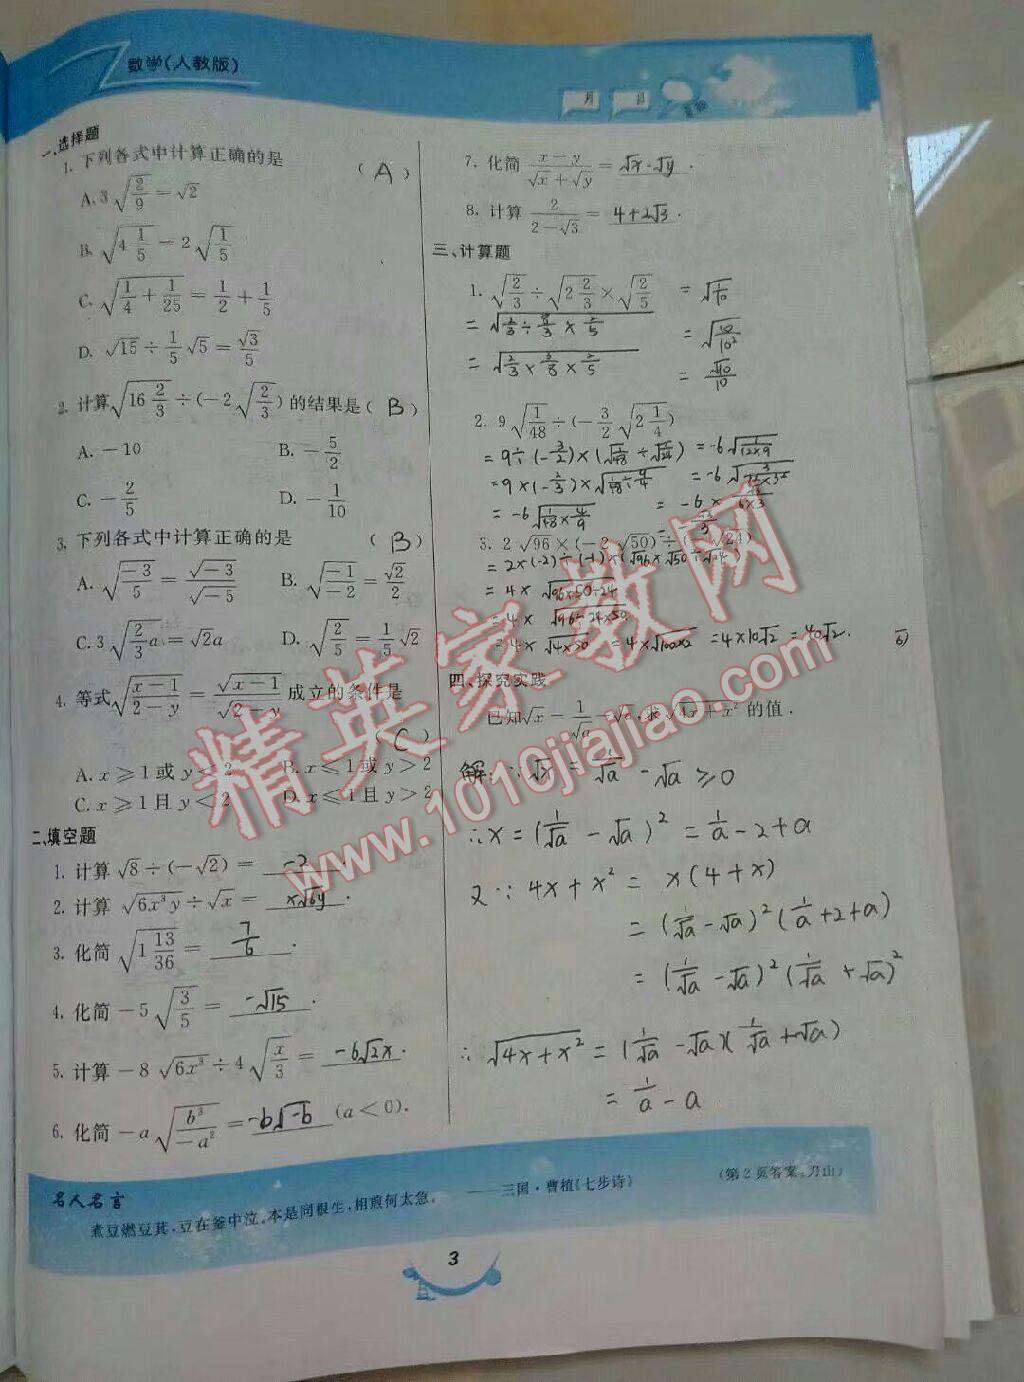 数学(人教版)
月 日
一、选择题
1. 下列各式中计算正确的是 (A)
A. 3√(2/9) = √2
B. √(4 1/5) = 2√(1/5)
C. √(1/4 + 1/25) = 1/2 + 1/5
D. √15 ÷ 1/5 √5 = √3/5
2. 计算√(16 2/3) ÷ (-2√(2/3)) 的结果是 (B)
A. -10 B. -5/2
C. -2/5 D. -1/10
3. 下列各式中计算正确的是 (B)
A. √(-3/5) = √-3/√-5 B. √(-1/-2) = √2/2
C. 3√(2/3 a) = √2a D. √(2/5) = 1/5 √2
4. 等式√((x-1)/(2-y)) = √(x-1)/√(2-y) 成立的条件是
(C)
A. x ≥ 1 或 y < 2 B. x ≤ 1 或 y > 2
C. x ≥ 1 且 y < 2 D. x ≤ 1 且 y > 2
二、填空题
1. 计算 √8 ÷ (-√2) = -2.
2. 计算 √(6x³y) ÷ √x = x√6y.
3. 化简 √(1 13/36) = 7/6.
4. 化简 -5√(3/5) = -√15.
5. 计算 -8√(6x³) ÷ 4√(x/3) = -6√2x.
6. 化简 -a√(b³/-a²) = -b√-b (a<0).
7. 化简 (x-y)/(√x+√y) = √x-√y.
8. 计算 2/(2-√3) = 4+2√3.
三、计算题
1. √(2/3) ÷ √(2 2/3) × √(2/5) = √(1/10)
= √(2/3 ÷ 8/3 × 2/5) = √(10/10²)
= √(2/3 × 3/8 × 2/5) = √10/10
2. 9√(1/48) ÷ (-3/2 √(2 1/4))
= 9 ÷ (-3/2) × (√(1/48) ÷ √(2 1/4)) = -6√(1/(12×9))
= 9 × (-2/3) × √(1/48 ÷ 9/4)
= -6√(1/48 × 4/9)
3. 2√96 × (-2√50) ÷ √24)
= 2×(-2)÷(-1)×(√96 × √50 ÷ √24
= 4 × √(96×50÷24)
= 4 × √(96÷24×50)
= 4 × √(4×50) = 4×√(100×2) = 4×10√2 = 40√2.
四、探究实践
已知√x = 1/√a - √a, 求√(4x+x²) 的值.
解: ∵√x = 1/√a - √a ≥ 0
∴x = (1/√a - √a)² = 1/a - 2 + a
又∵ 4x + x² = x(4+x)
= (1/√a - √a)² (1/a + 2 + a)
= (1/√a - √a)² (1/√a + √a)²
∴ √(4x+x²) = (1/√a - √a)(1/√a + √a)
= 1/a - a
精英家教网
www.1010jiajiao.com
名人名言
煮豆燃豆萁,豆在釜中泣。本是同根生,相煎何太急。 ——三国·曹植《七步诗》
(第2页答案:刀山)
3